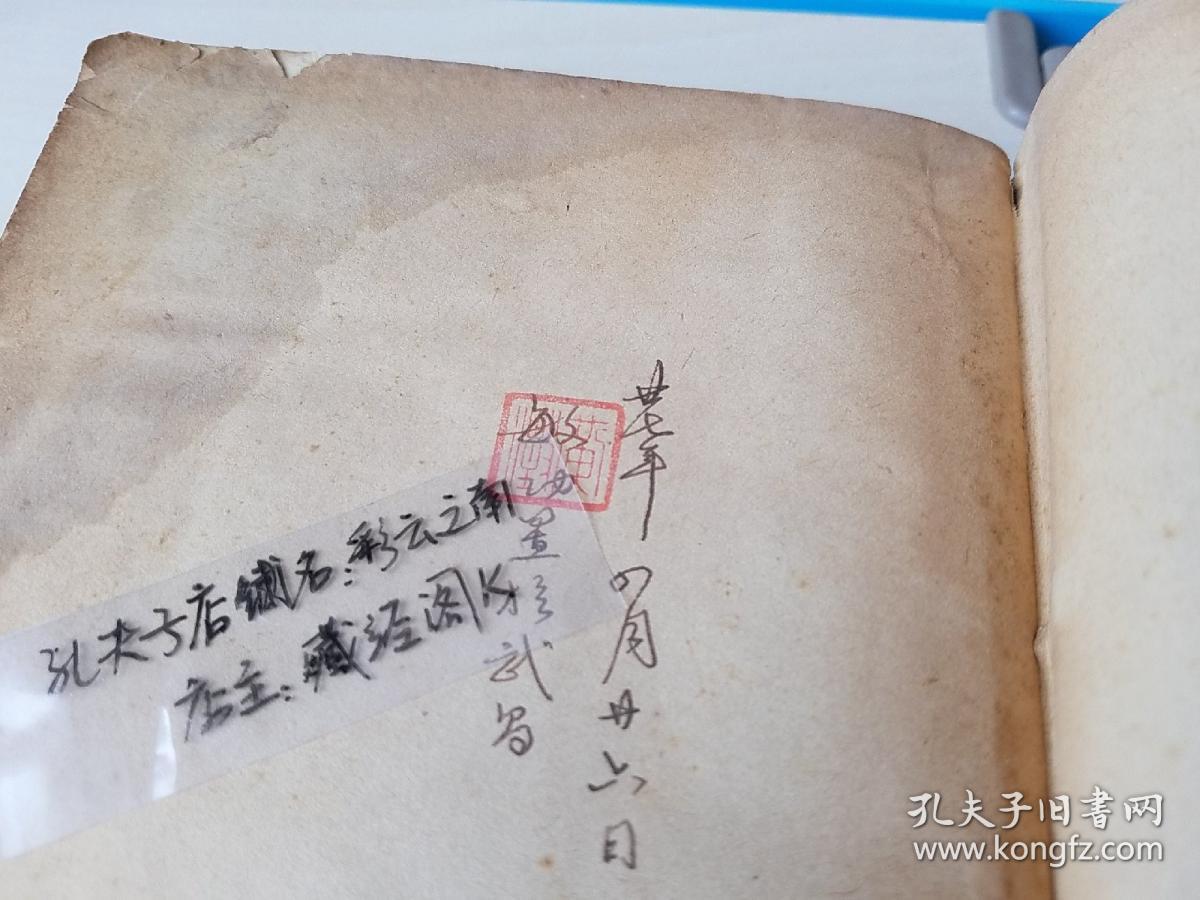 卅七年 四月廿六日
置於武昌
孔夫子店铺名:彩云之南
店主:藏经阁K
孔夫子旧书网
www.kongfz.com